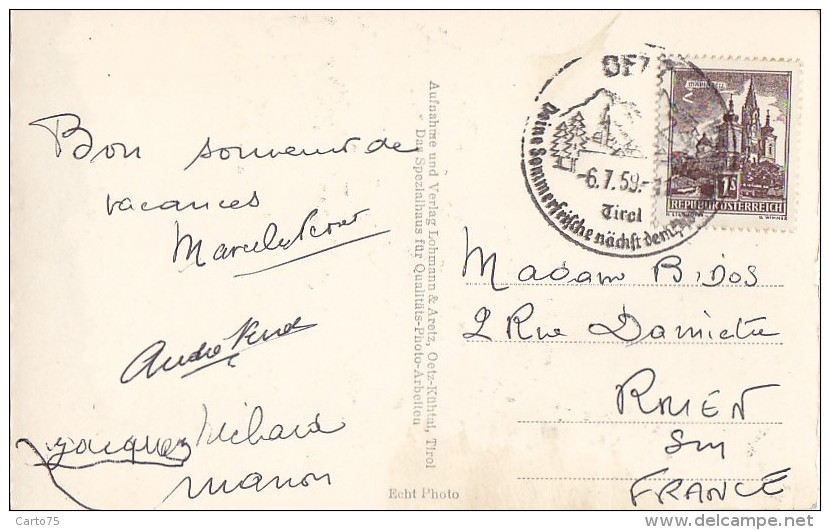 Bon souvenir de
vacances
Marcel Perer
André Perer
Jacques Richard
Manon
Aufnahme und Verlag Lohmann & Aretz, Oetz-Kühtai, Tirol
Das Spezialhaus für Qualitäts-Photo-Arbeiten
Echt Photo
OETZ
-6.7.59.-
Tirol
Deine Sommerfrische nächst dem
MARIAZELL
1S
REPUBLIK ÖSTERREICH
Madam Bidos
2 Rue Damiette
ROUEN
Sm
FRANCE
Carto75
www.delcampe.net